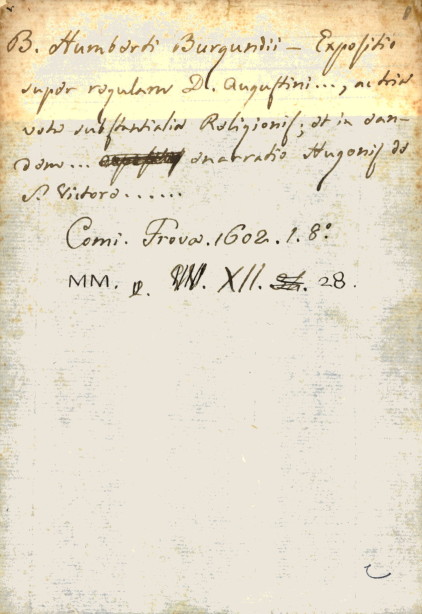 B. Humberti Burgundii – Expositio
super regulam D. Augustini..., ac tria
vota substantialia Religionis; et in ean-
dem... enarratio Hugonis de
S. Victore......
Comi. Frova. 1602. 1. 8.º
MM. XII. 28.